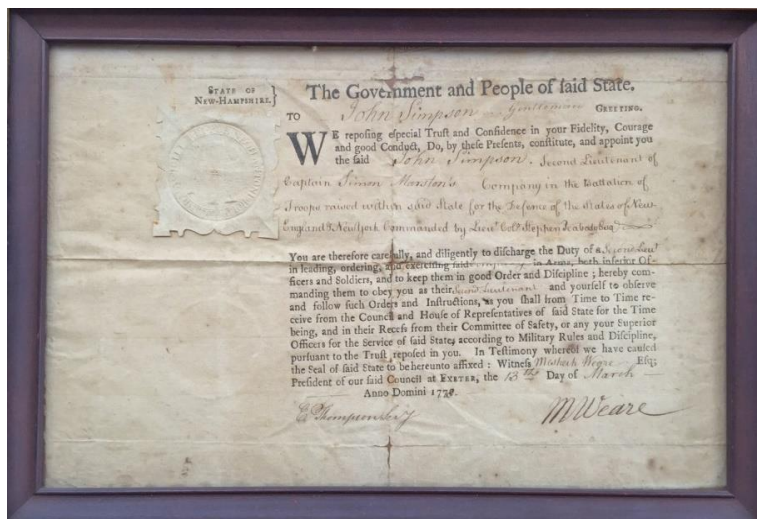 STATE OF
NEW-HAMPSHIRE.}
The Government and People of ſaid State,
TO John Simpson Gentleman GREETING.
WE repoſing eſpecial Truſt and Confidence in your Fidelity, Courage
and good Conduct, Do, by theſe Preſents, conſtitute, and appoint you
the ſaid John Simpson. Second Lieutenant of
Captain Simon Marston's Company in the Battalion of
Troops raised within said State for the Defence of the States of New
England & New York Commanded by Lieut. Colo. Stephen Peabody Esq
You are therefore carefully, and diligently to diſcharge the Duty of a Second Lieut
in leading, ordering, and exerciſing ſaid Company in Arms, both inferior Of-
ficers and Soldiers, and to keep them in good Order and Diſcipline ; hereby com-
manding them to obey you as their Second Lieutenant and yourſelf to obſerve
and follow ſuch Orders and Inſtructions, as you ſhall from Time to Time re-
ceive from the Council and Houſe of Repreſentatives of ſaid State for the Time
being, and in their Receſs from their Committee of Safety, or any your Superior
Officers for the Service of ſaid State, according to Military Rules and Diſcipline,
purſuant to the Truſt repoſed in you. In Teſtimony whereof we have cauſed
the Seal of ſaid State to be hereunto affixed : Witneſs Meshech Weare Eſq;
Preſident of our ſaid Council at EXETER, the 13th Day of March
Anno Domini 1778.
E Thompson Secy
M Weare